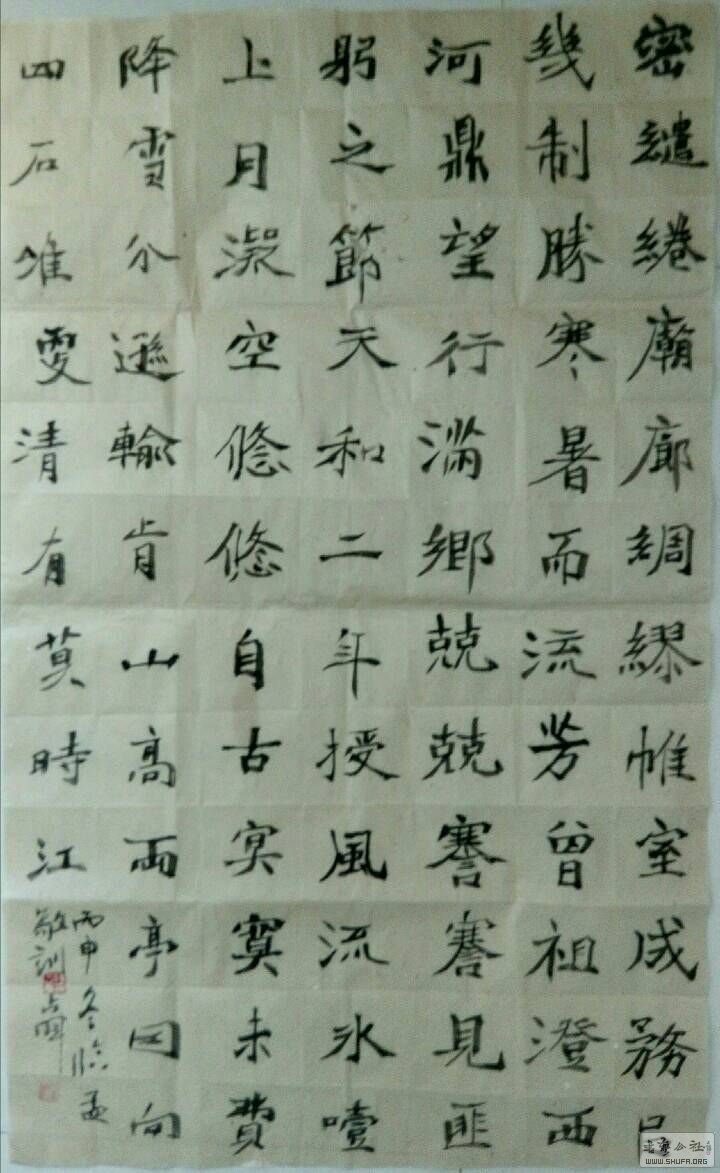 密繾綣廟廊綢繆帷室成務
幾制勝寒暑而流芳曾祖澄西
河鼎望行滿鄉兢兢謇謇見匪
躬之節天和二年授風流氷噎
上月凝空悠悠自古冥寞未費
降雪分遜輸肯山高雨亭回向
四石惟雯清有莫時江
丙申冬臨孟
敬訓
WWW.SHUFA.ORG